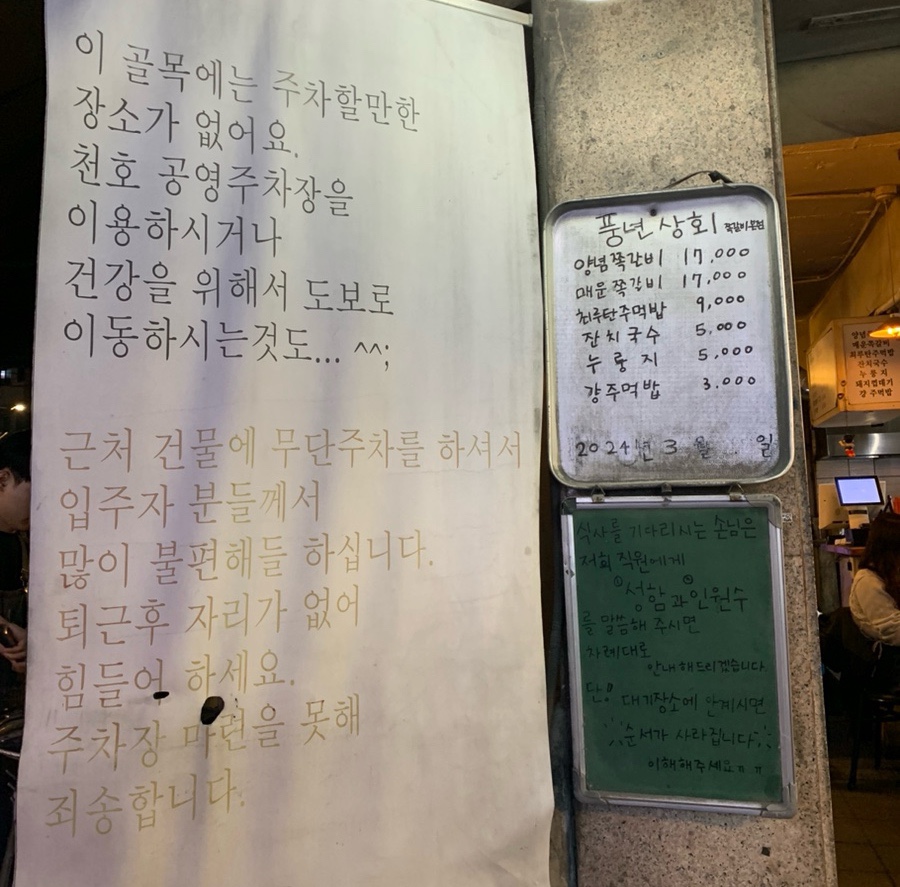 이 골목에는 주차할만한
장소가 없어요.
천호 공영주차장을
이용하시거나
건강을 위해서 도보로
이동하시는것도... ^^;
근처 건물에 무단주차를 하셔서
입주자 분들께서
많이 불편해들 하십니다.
퇴근후 자리가 없어
힘들어 하세요.
주차장 마련을 못해
죄송합니다.
풍년상회 쪽갈비본점
양념쪽갈비 17,000
매운쪽갈비 17,000
최루탄주먹밥 9,000
잔치국수 5,000
누룽지 5,000
걍주먹밥 3.000
2024년 3월 일
식사를 기다리시는 손님은
저희 직원에게
①성함과 ②인원수
를 말씀해 주시면
차례대로
안내해드리겠습니다.
단!
대기장소에 안계시면
순서가 사라집니다
이해해주세요ㅠㅠ
매운쪽갈비
최루탄주먹밥
잔치국수
누룽지
돼지껍데기
걍 주먹밥